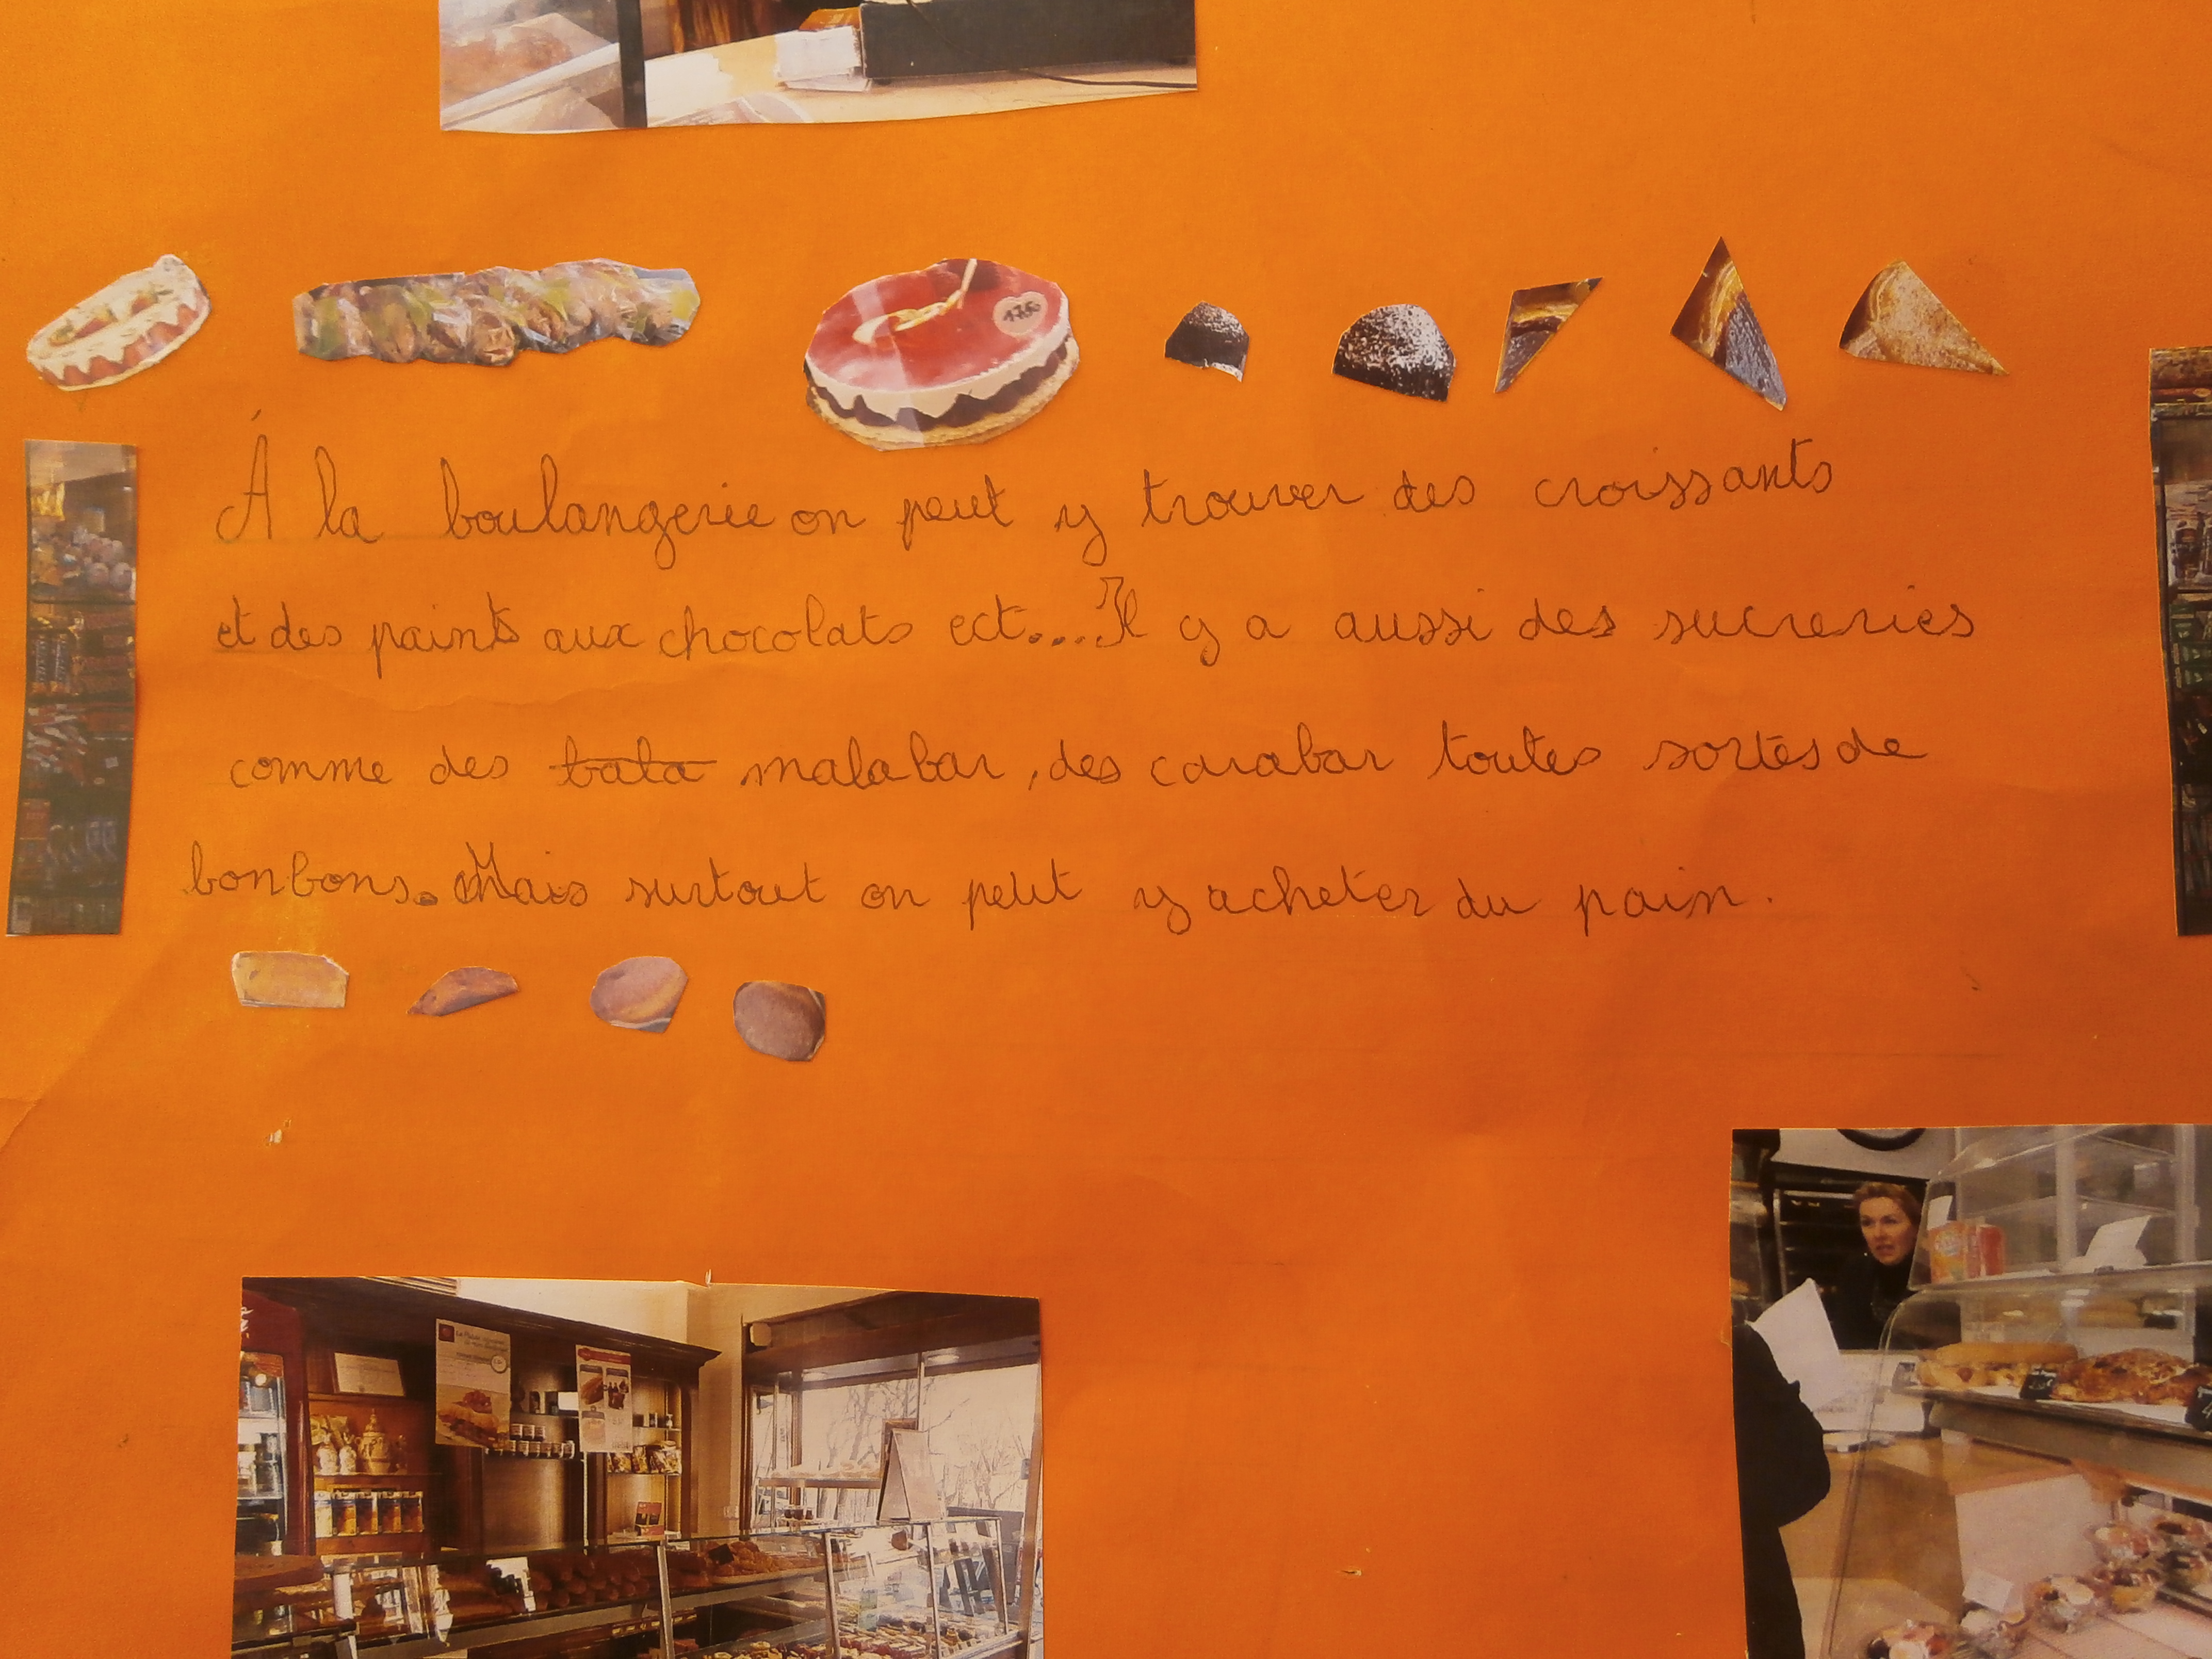 17.50
Á la boulangerie on peut y trouver des croissants
et des paints aux chocolats ect...Il y a aussi des sucreries
comme des bata malabar, des carabar toutes sortes de
bonbons. Mais surtout on peut y acheter du pain.